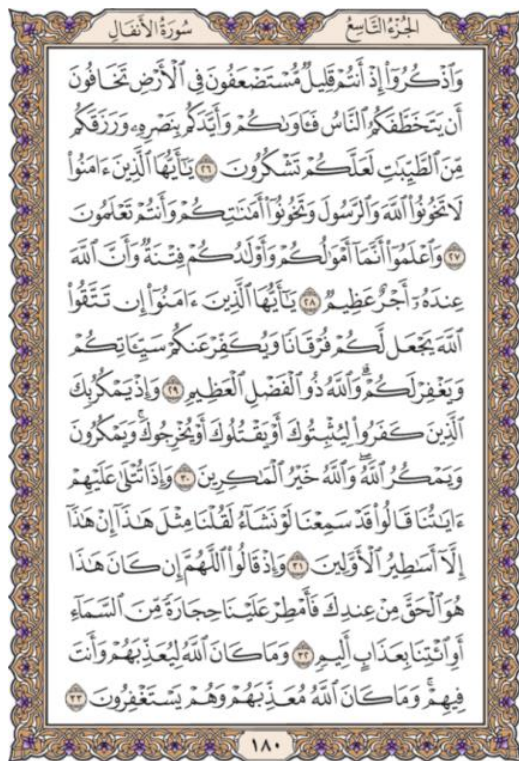 الجزء التاسع
سورة الأنفال
وَٱذْكُرُوٓا۟ إِذْ أَنتُمْ قَلِيلٌ مُّسْتَضْعَفُونَ فِى ٱلْأَرْضِ تَخَافُونَ
أَن يَتَخَطَّفَكُمُ ٱلنَّاسُ فَـَٔاوَىٰكُمْ وَأَيَّدَكُم بِنَصْرِهِۦ وَرَزَقَكُم
مِّنَ ٱلطَّيِّبَـٰتِ لَعَلَّكُمْ تَشْكُرُونَ ٢٦ يَـٰٓأَيُّهَا ٱلَّذِينَ ءَامَنُوا۟
لَا تَخُونُوا۟ ٱللَّهَ وَٱلرَّسُولَ وَتَخُونُوٓا۟ أَمَـٰنَـٰتِكُمْ وَأَنتُمْ تَعْلَمُونَ
٢٧ وَٱعْلَمُوٓا۟ أَنَّمَآ أَمْوَٰلُكُمْ وَأَوْلَـٰدُكُمْ فِتْنَةٌ وَأَنَّ ٱللَّهَ
عِندَهُۥٓ أَجْرٌ عَظِيمٌ ٢٨ يَـٰٓأَيُّهَا ٱلَّذِينَ ءَامَنُوٓا۟ إِن تَتَّقُوا۟
ٱللَّهَ يَجْعَل لَّكُمْ فُرْقَانًا وَيُكَفِّرْ عَنكُمْ سَيِّـَٔاتِكُمْ
وَيَغْفِرْ لَكُمْ ۗ وَٱللَّهُ ذُو ٱلْفَضْلِ ٱلْعَظِيمِ ٢٩ وَإِذْ يَمْكُرُ بِكَ
ٱلَّذِينَ كَفَرُوا۟ لِيُثْبِتُوكَ أَوْ يَقْتُلُوكَ أَوْ يُخْرِجُوكَ ۚ وَيَمْكُرُونَ
وَيَمْكُرُ ٱللَّهُ ۖ وَٱللَّهُ خَيْرُ ٱلْمَـٰكِرِينَ ٣٠ وَإِذَا تُتْلَىٰ عَلَيْهِمْ
ءَايَـٰتُنَا قَالُوا۟ قَدْ سَمِعْنَا لَوْ نَشَآءُ لَقُلْنَا مِثْلَ هَـٰذَآ إِنْ هَـٰذَآ
إِلَّآ أَسَـٰطِيرُ ٱلْأَوَّلِينَ ٣١ وَإِذْ قَالُوا۟ ٱللَّهُمَّ إِن كَانَ هَـٰذَا
هُوَ ٱلْحَقَّ مِنْ عِندِكَ فَأَمْطِرْ عَلَيْنَا حِجَارَةً مِّنَ ٱلسَّمَآءِ
أَوِ ٱئْتِنَا بِعَذَابٍ أَلِيمٍ ٣٢ وَمَا كَانَ ٱللَّهُ لِيُعَذِّبَهُمْ وَأَنتَ
فِيهِمْ ۚ وَمَا كَانَ ٱللَّهُ مُعَذِّبَهُمْ وَهُمْ يَسْتَغْفِرُونَ ٣٣
١٨٠